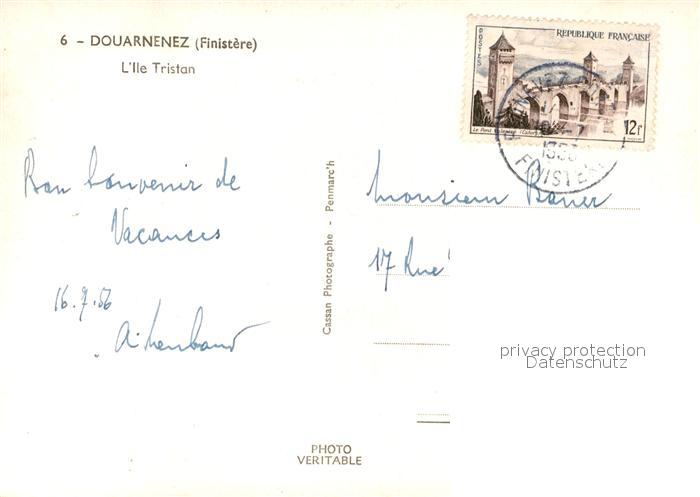 6 - DOUARNENEZ (Finistère)
L'Ile Tristan
Bon Souvenir de
Vacances
16.7.56
Cassan Photographe - Penmarc'h
PHOTO
VERITABLE
POSTES
REPUBLIQUE FRANÇAISE
Le Pont Valentré (Cahors)
12f
FINISTERE
Monsieur
17 Rue
privacy protection
Datenschutz